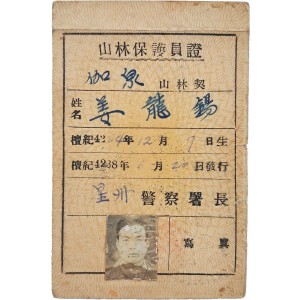 山林保護員證
伽泉 山林契
姓名 姜龍錫
檀紀42 9年12月 7日生
檀紀4288年 月20日發行
星州 警察署長
寫眞